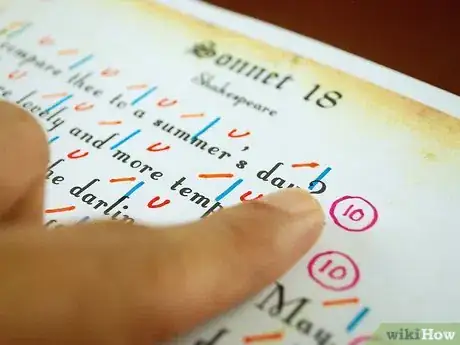 Sonnet 18
Shakespeare
compare thee to a summer's day?
10
lovely and more temp
10
he darlin
May
wikiHow